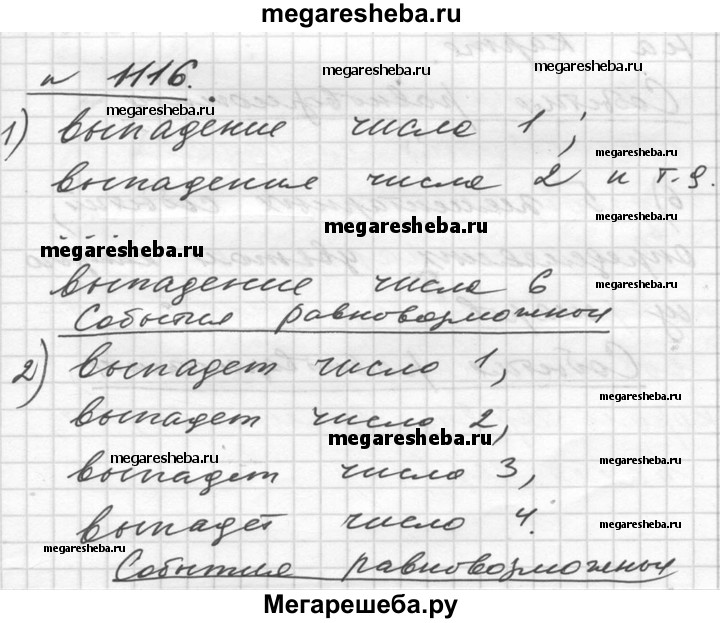 megaresheba.ru
n 1116.
megaresheba.ru
megaresheba.ru
megaresheba.ru
1) выпадение числа 1;
megaresheba.ru
выпадение числа 2 и т.д.
megaresheba.ru
megaresheba.ru
megaresheba.ru
выпадение числа 6
События равновозможны
megaresheba.ru
2) выпадет число 1,
megaresheba.ru
выпадет число 2,
megaresheba.ru
megaresheba.ru
выпадет число 3,
megaresheba.ru
выпадет число 4.
megaresheba.ru
События равновозможны
megaresheba.ru
Мегарешеба.ру